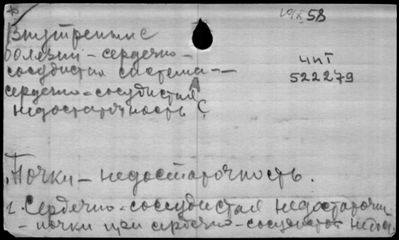 19 IX 58
Внутренние
болезни - сердечно-
сосудистая система -
сердечно-сосудистая
недостаточность
ЧИТ
522279
Почки - недостаточность.
1. Сердечно-сосудистая недостаточн
- почки при сердечно-сосудистой недос